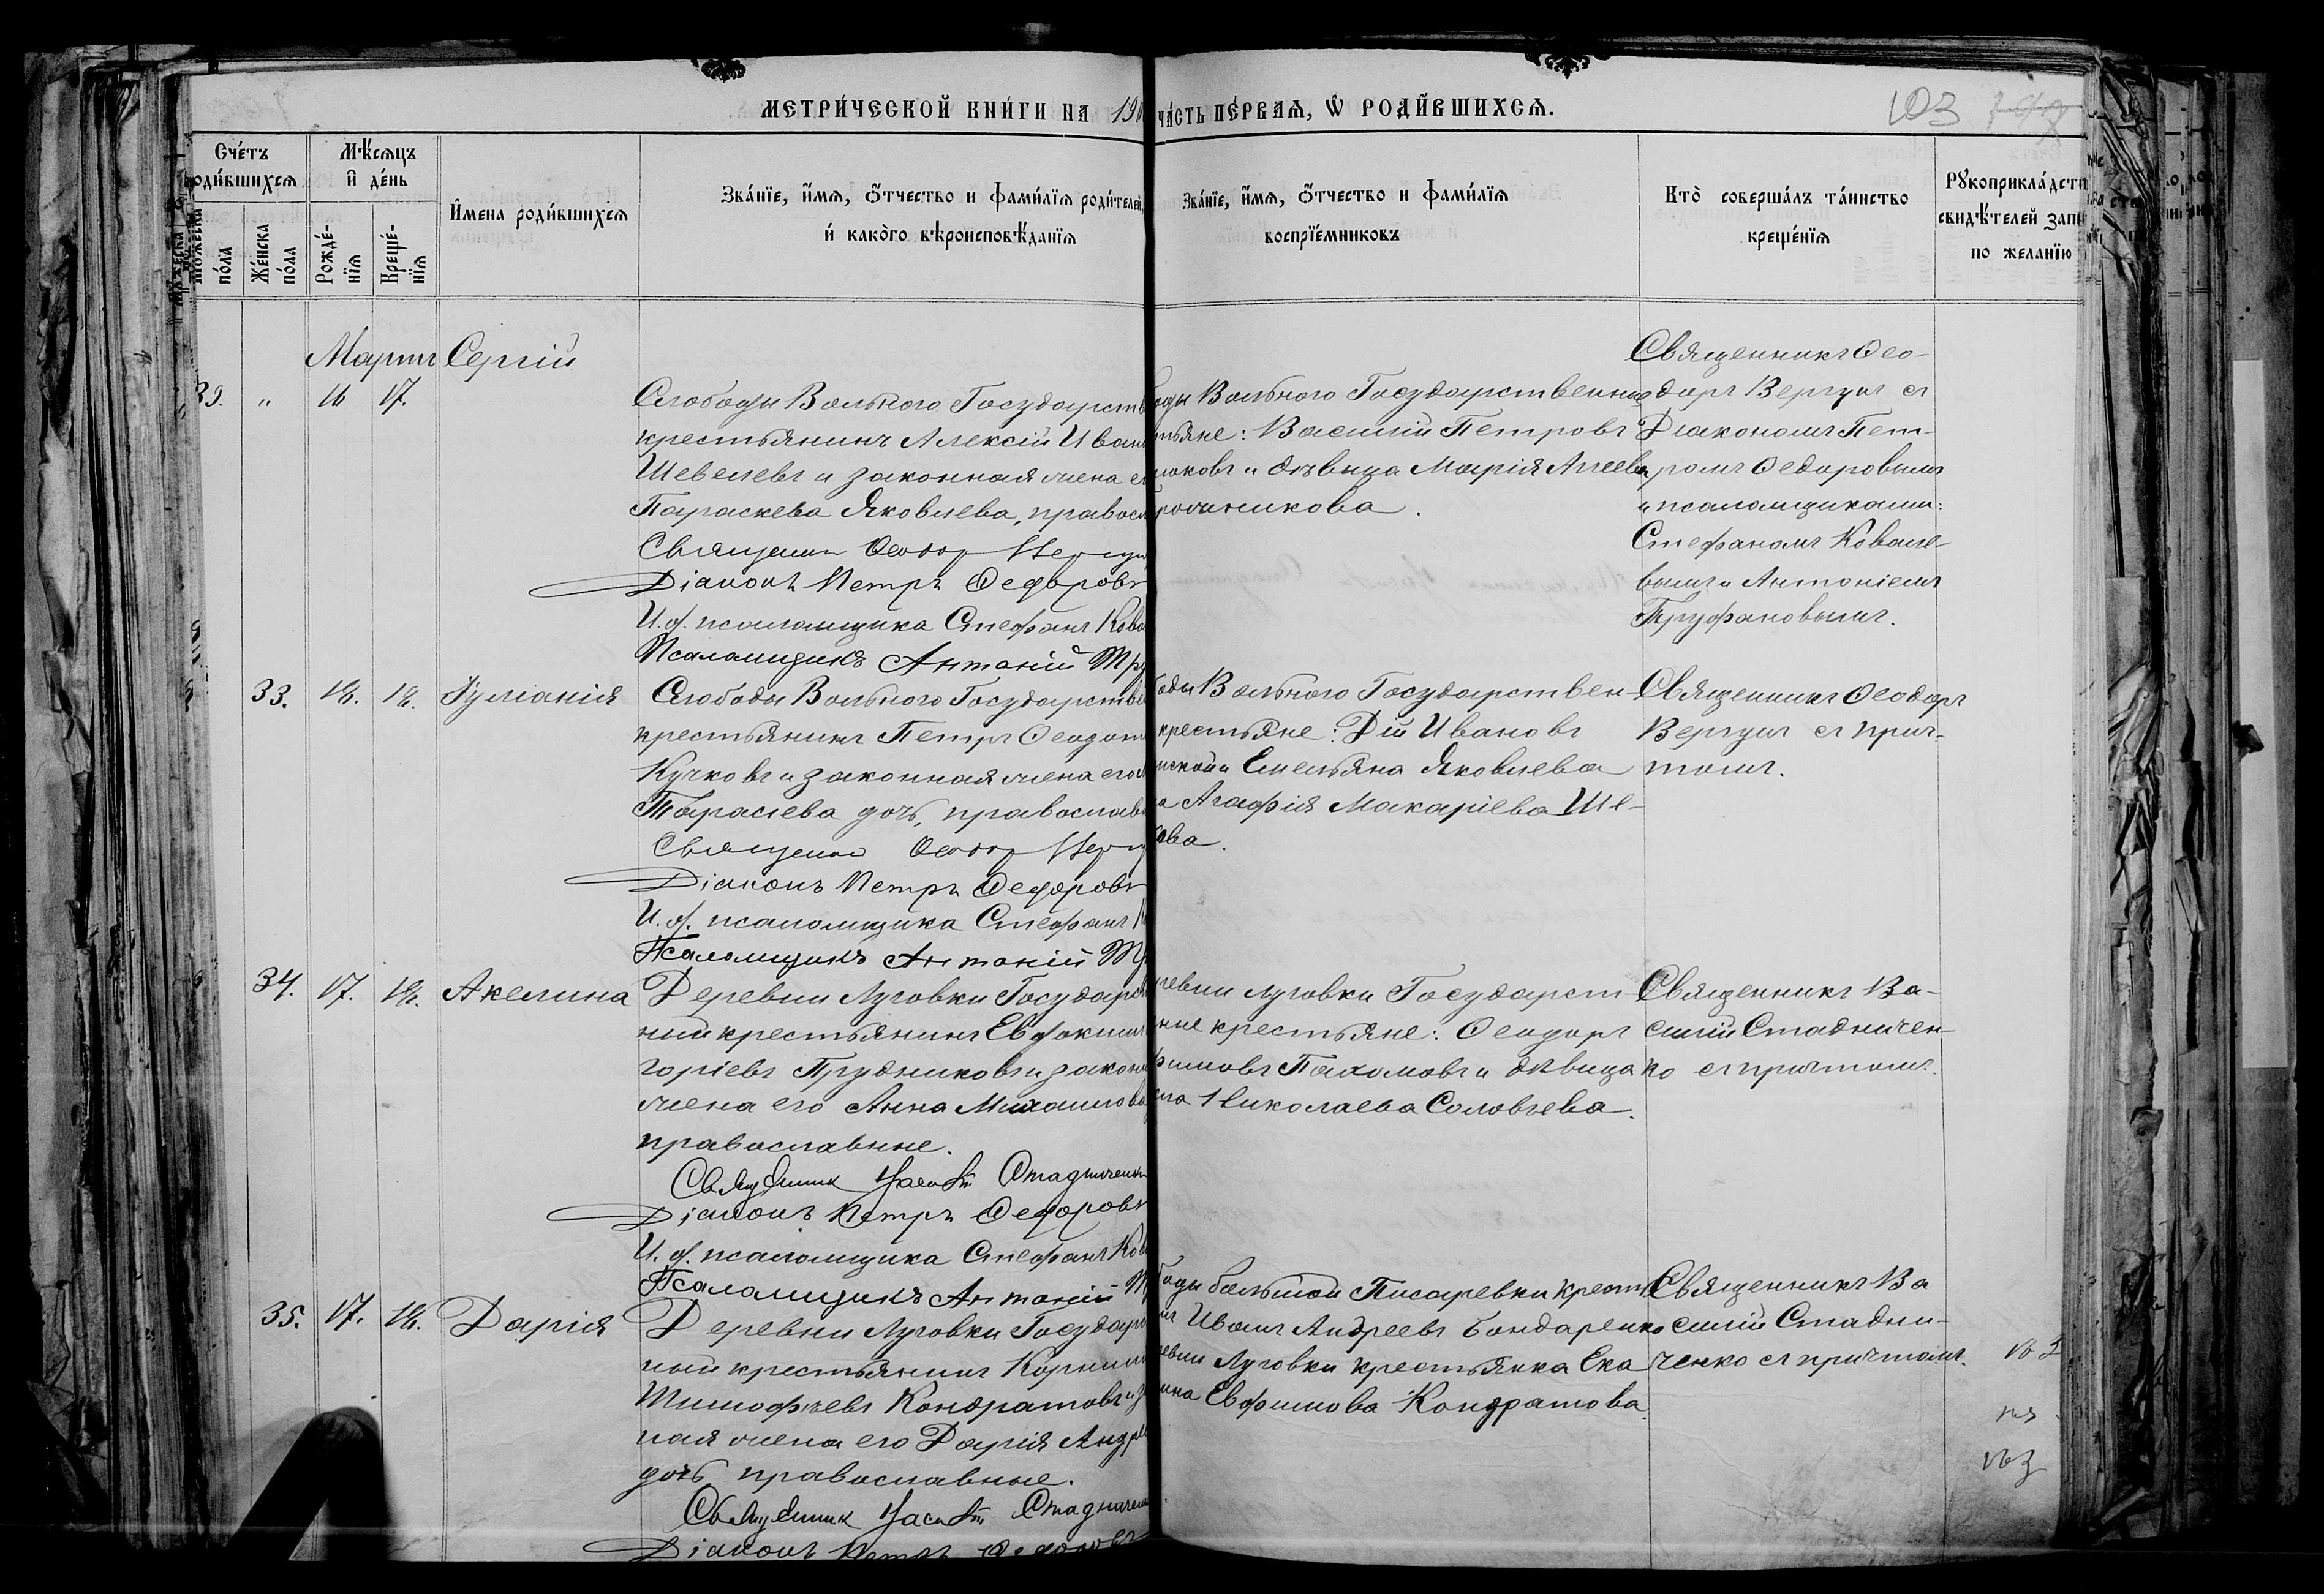 МЕТРИ́ЧЕСКОЙ КНИ́ГИ НА 190
ЧА́СТЬ ПЕ́РВАЯ, Ѡ҆ РОДИ́ВШИХСЯ.
103
Сче́тъ
роди́вшихся
Мѣ́сяцъ
и҆ де́нь
И҆мена роди́вшихся
Зва́нїе, и҆́мя, ѻ҆́тчество и фами́лїя роди́телей,
и҆ како́го вѣроисповѣ́данїя
Зва́нїе, и҆́мя, ѻ҆́тчество и фами́лїя
воспрїе́мниковъ
Кто̀ соверша́лъ та́инство
креще́нїя
Рꙋкоприкла́дст
свидѣ́телей запи
по желанїю
по́ла
Же́нска
по́ла
Рожде́-
нїя
Креще́-
нїя
Мартъ Сергій
39. " 16 17.
Слободы Вольного Государств
крестьянинъ Алексій Иван
Шевелевъ и законная жена е
Параскева Яковлева, правосл
Священ Феодор Вергун
Діаконъ Петръ Федоровъ
И. д. псаломщика Стефанъ Кова
Псаломщикъ Антоній Тру
оды Вольного Государственные
тьяне: Василій Петровъ
люковъ и дѣвица Марія Агеева
рочникова.
Священникъ Ѳео-
доръ Вергунъ съ
Діакономъ Пет-
ромъ Ѳедоровымъ
и псаломщиками:
Стефаномъ Ковале-
вымъ и Антоніемъ
Труфановымъ.
33. 18. 18. Іуліанія
Слободы Вольного Государстве
крестьянинъ Петръ Ѳеодот
Кучковъ и законная жена его
Тарасіева дочь, православ
Священ Феодор Верг
Діаконъ Петръ Федоровъ
И. д. псаломщика Стефанъ К
Псаломщикъ Антоній Тр
боды Вольного Государствен-
крестьяне: Дій Ивановъ
нской и Емельяна Яковлева
а Агафія Макаріева Ше-
кова.
Священникъ Ѳеодоръ
Вергунъ съ прич-
томъ.
34. 17. 18. Акелина
Деревни Луговки Государст
ный крестьянинъ Евдокимъ
горіевъ Прудниковъ и законн
жена его Анна Михаилова
православные.
Священник Василій Стадниченко
Діаконъ Петръ Федоровъ
И. д. псаломщика Стефанъ Ков
Псаломщикъ Антоній Т
ревни Луговки Государст-
ные крестьяне: Ѳеодоръ
фимовъ Пахомовъ и дѣвица
на Николаева Соловьева.
Священникъ Ва-
силій Стадничен-
ко съ причтомъ.
35. 17. 18. Дарія
Деревни Луговки Государ
ный крестьянинъ Корнилій
Тимофѣевъ Кондратовъ и з
ная жена его Дарія Андре
дочь православные.
Священник Василій Стадничен
Діаконъ Петръ Федоровъ
боды большой Писаревки крест
нъ Иванъ Андреевъ Бондаренко
ревни Луговки крестьянка Ека
ина Евфимова Кондратова.
Священникъ Ва
силій Стадни-
ченко съ причтомъ.